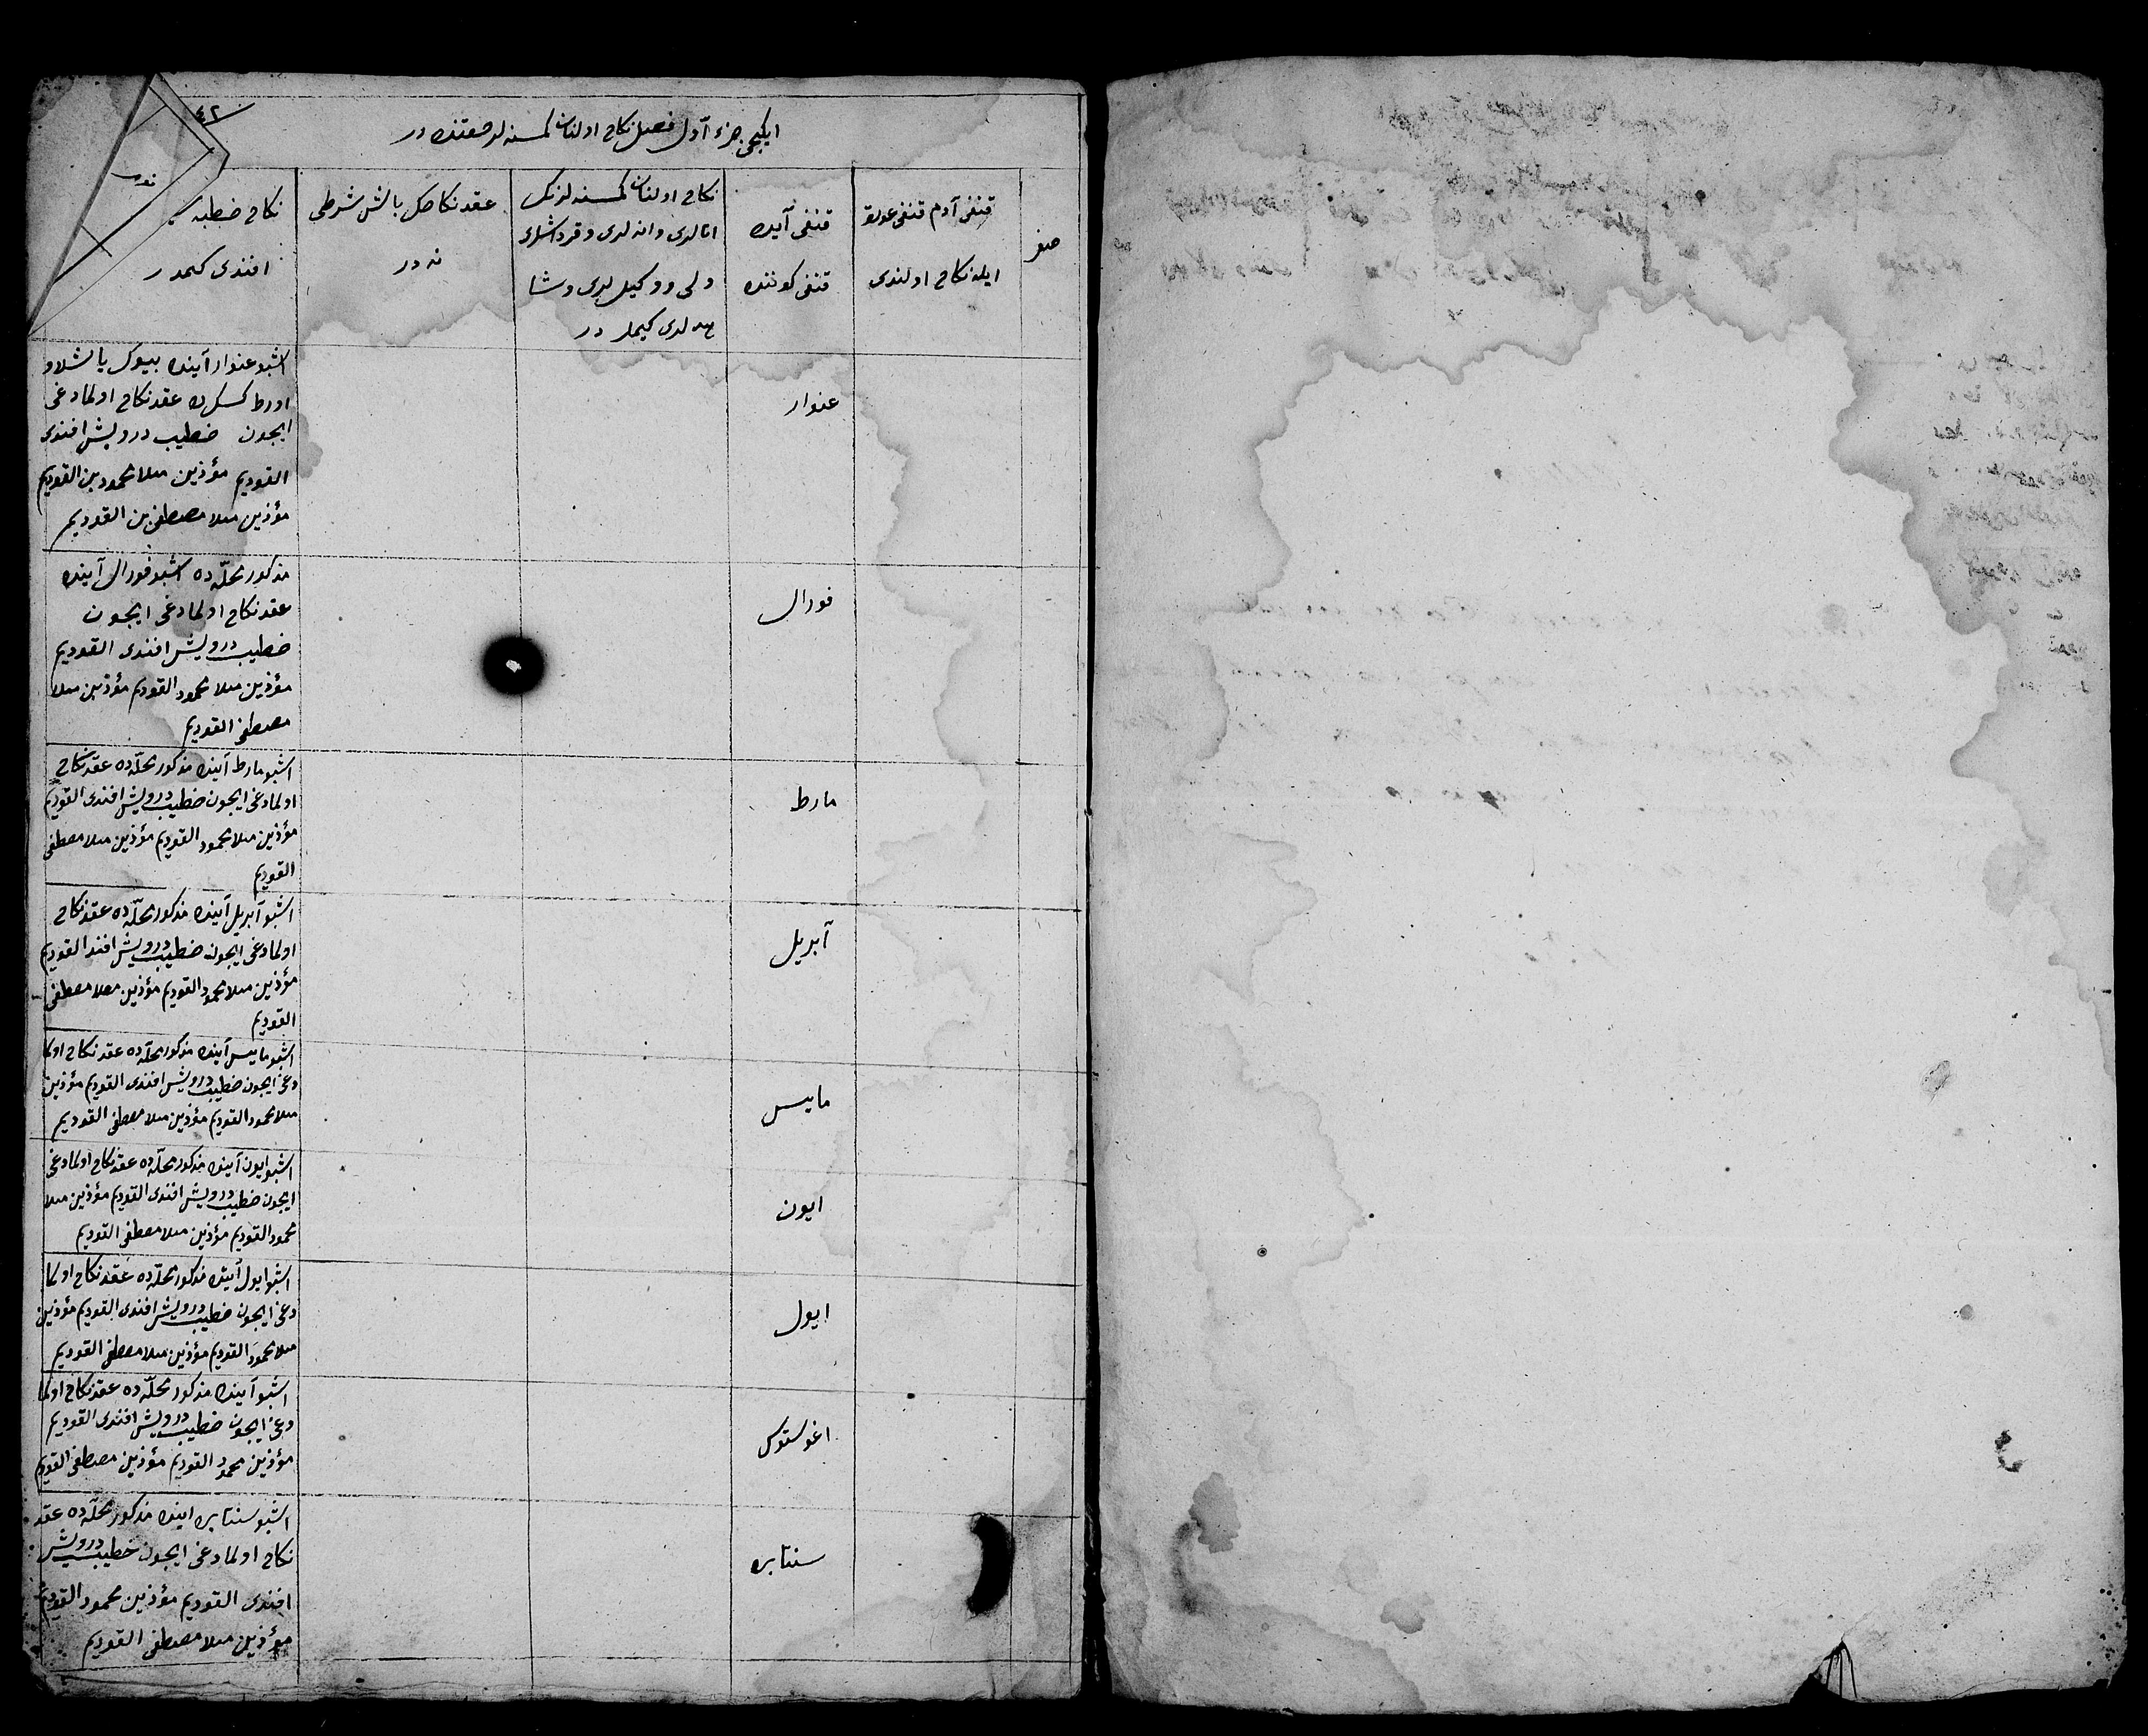 ٤٢
ایكیجی جزء آول فصل نكاح اولنان كمسنه لر حقنده در
صفر
قنغی آدم قنغی عورة
ایله نكاح اولندی
قنغی آیده
قنغی كوننده
نكاح اولنان كمسنه لرنك
اتالری و انه لری و قرداشلری
ولی و وكیل لری و شا
هد لری كیملر در
عقد نكاحك بالش شرطی
نه در
نكاح خطبه
افندی كیمدر
عنوار
اشبو عنوار آینده بیوك یا لشلاو
اورط كسك ده عقد نكاح اولمادغی
ایچون خطیب درویش افندی
القویم مؤذین ملا محمود بن القویم
مؤذین ملا مصطفی بن القویم
فورال
مذكور محلّه ده اشبو فورال آینده
عقد نكاح اولمادغی ایچون
خطیب درویش افندی القویم
مؤذین ملا محمود القویم مؤذین ملا
مصطفی القویم
مارط
اشبو مارط آینده مذكور محلّه ده عقد نكاح
اولمادغی ایچون خطیب درویش افندی القویم
مؤذین ملا محمود القویم مؤذین ملا مصطفی
القویم
آبریل
اشبو آبریل آینده مذكور محلّه ده عقد نكاح
اولمادغی ایچون خطیب درویش افند القویم
مؤذین ملا محمود القویم مؤذین ملا مصطفی
القویم
مایس
اشبو مایس آینده مذكور محلّه ده عقد نكاح اولما
دغی ایچون خطیب درویش افندی القویم مؤذین
ملا محمود القویم مؤذین ملا مصطفی القویم
ایون
اشبو ایون آینده مذكور محلّه ده عقد نكاح اولمادغی
ایچون خطیب درویش افندی القویم مؤذین ملا
محمود القویم مؤذین ملا مصطفی القویم
ایول
اشبو ایول آینده مذكور محلّه ده عقد نكاح اولما
دغی ایچون خطیب درویش افندی القویم مؤذین
ملا محمود القویم مؤذین ملا مصطفی القویم
اغوستوس
اشبو آینده مذكور محلّه ده عقد نكاح اولما
دغی ایچون خطیب درویش افندی القویم
مؤذین محمود القویم مؤذین مصطفی القویم
سنتابره
اشبو سنتابره اینده مذكور محلّه ده عقد
نكاح اولمادغی ایچون خطیب درویش
افندی القویم مؤذین محمود القویم
مؤذین ملا مصطفی القویم